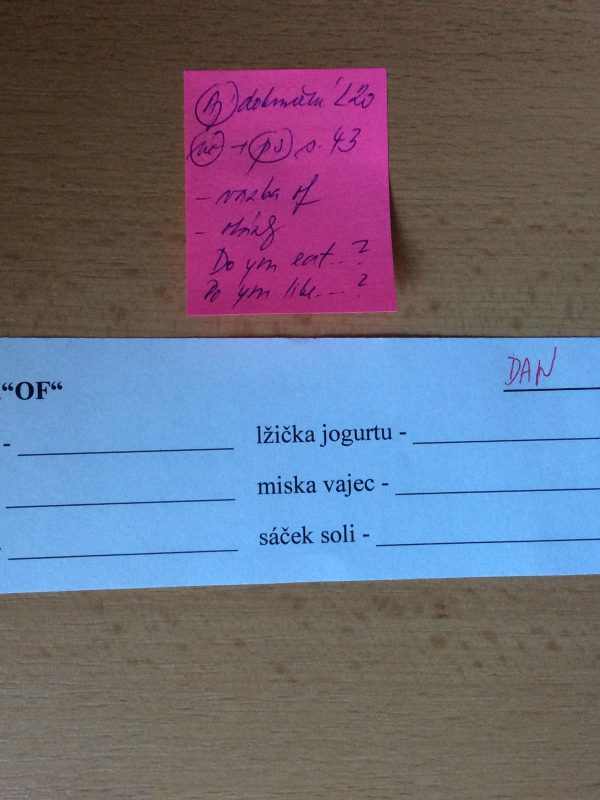 Aj dokončit L20
uč + ps s. 43
- vazba of
- otázky
Do you eat...?
Do you like...?
"OF"
DAN
-
lžička jogurtu -
miska vajec -
sáček soli -